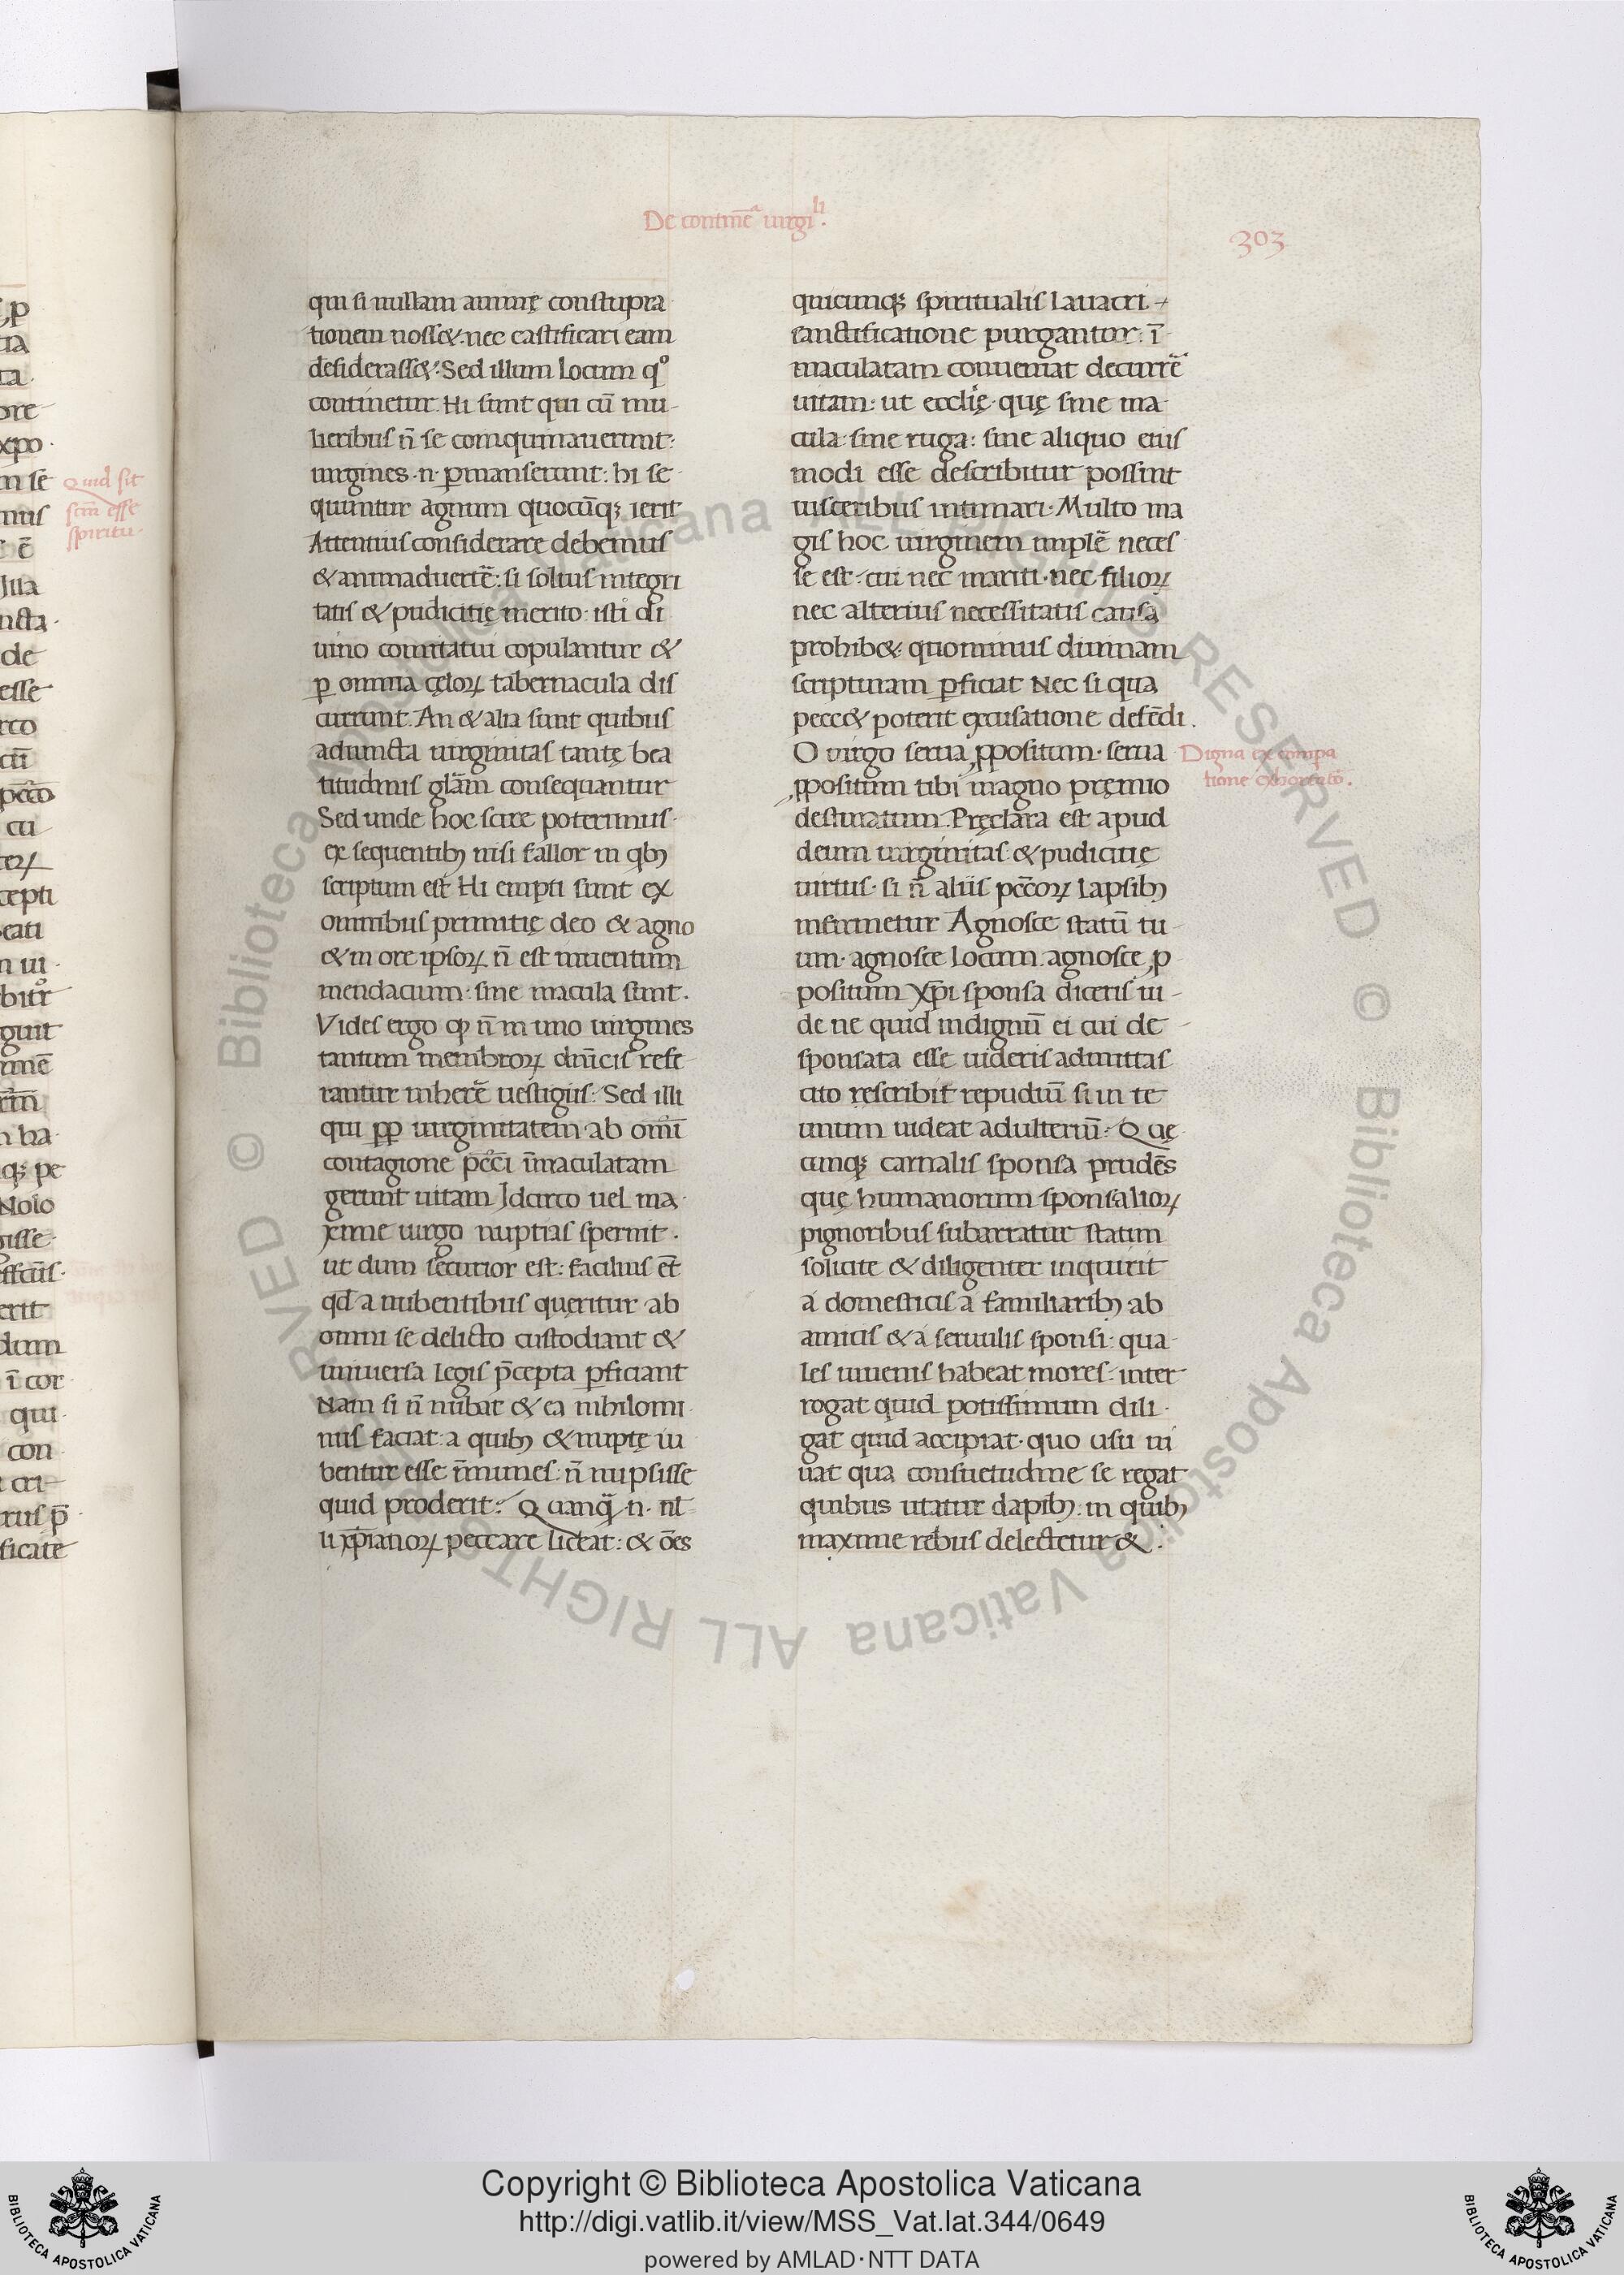 De contin̄eᵃ uirgiˡⁱ.
303
qui si nullam animę constupra
tionem nosset. nec castificari eam
desiderasset. Sed illum locum qͦ
continetur. Hi sunt qui cū mu-
lieribus n̄ se coinquinauerunt:
uirgines .n. ꝑmanserunt: hi se-
quuntur agnum quocūqꝫ ierit
Attentius considerare debemus
& animaduert̄e: si solius integri
tatis & pudicitię merito: isti di
uino comitatui copulantur &
ꝑ omnia cęloꝝ tabernacula dis
currunt. An & alia sunt quibus
adiuncta uirginitas tantę bea
titudinis glām consequantur
Sed unde hoc scire poterimus.
ex sequentibꝫ nisi fallor in qbꝫ
scriptum est Hi empti sunt ex
omnibus primitię deo & agno
& in ore ipsoꝝ n̄ est inuentum
mendacium: sine macula sunt.
Vides ergo ꝙ n̄ in uno uirgines
tantum membroꝝ dn̄icis refe
rantur inher̄e uestigiis: Sed illi
qui pp uirginitatem ab om̄i
contagione pc̄ci īmaculatam
gerunt uitam Jdcirco uel ma-
xime uirgo nuptias spernit.
ut dum securior est: facilius et̄
qd̄ a nubentibus queritur ab
omni se delicto custodiant &
uniuersa legis p̄cepta ꝑficiant
Nam si n̄ nubat & ea nihilomi-
nus faciat: a quibꝫ & nuptę iu
bentur esse īmunes: n̄ nupsisse
quid proderit: Quanq̄ .n. nl̄-
li xp̄ianoꝝ peccare liceat: & ōes
quicunqꝫ spiritualis lauacri -
sanctificatione purgantur: ī-
maculatam conueniat decurr̄e
uitam: ut eccl̄ię quę sine ma-
cula: sine ruga: sine aliquo eius
modi esse describitur possint
uisceribus intimari. Multo ma
gis hoc uirginem impl̄e neces
se est: cui nec mariti. nec filioꝝ
nec alterius necessitatis causa
prohibet: quominus diuinam
scripturam ꝑficiat Nec si qua
peccet poterit excusatione defēdi.
O uirgo serua ꝓpositum. serua
ꝓpositum tibi magno pręmio
destinatum. Pręclara est apud
deum uirginitas: & pudicitię
uirtus. si n̄ aliis pc̄coꝝ lapsibꝫ
infirmetur Agnosce statū tu-
um. agnosce locum. agnosce ꝓ
positum Xp̄i sponsa diceris ui-
de ne quid indignū ei cui de
sponsata esse uideris admittas
cito rescribit repudiū si in te
unum uideat adulteriū: Quę
cunqꝫ carnalis sponsa prudēs
quę humanorum sponsalioꝝ
pignoribus subarratur statim
solicite & diligenter inquirit
a domesticis a familiaribꝫ ab
amicis & a seruulis sponsi: qua-
les iuuenis habeat mores: inter
rogat quid potissimum dili-
gat quid accipiat. quo usu ui
uat qua consuetudine se regat
quibus utatur dapibꝫ: in quibꝫ
maxime rebus delectetur &.
Digna ex compa
tione exhortatō.
Quid sit
scm̄ esse
spiritu.
Copyright © Biblioteca Apostolica Vaticana
http://digi.vatlib.it/view/MSS_Vat.lat.344/0649
powered by AMLAD·NTT DATA